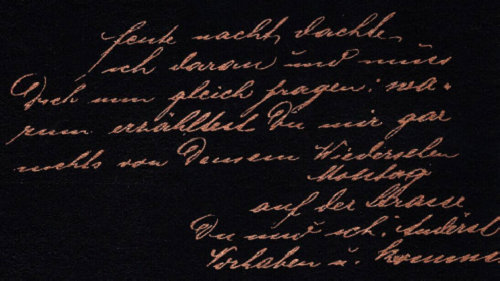 Heute nacht dachte
ich daran und muss
Dich nun gleich fragen: wa-
rum erzähltest Du mir gar
nichts von Deinem Wiedersehen
Montag
auf der Strasse
Du und ich:
Vorhaben u.